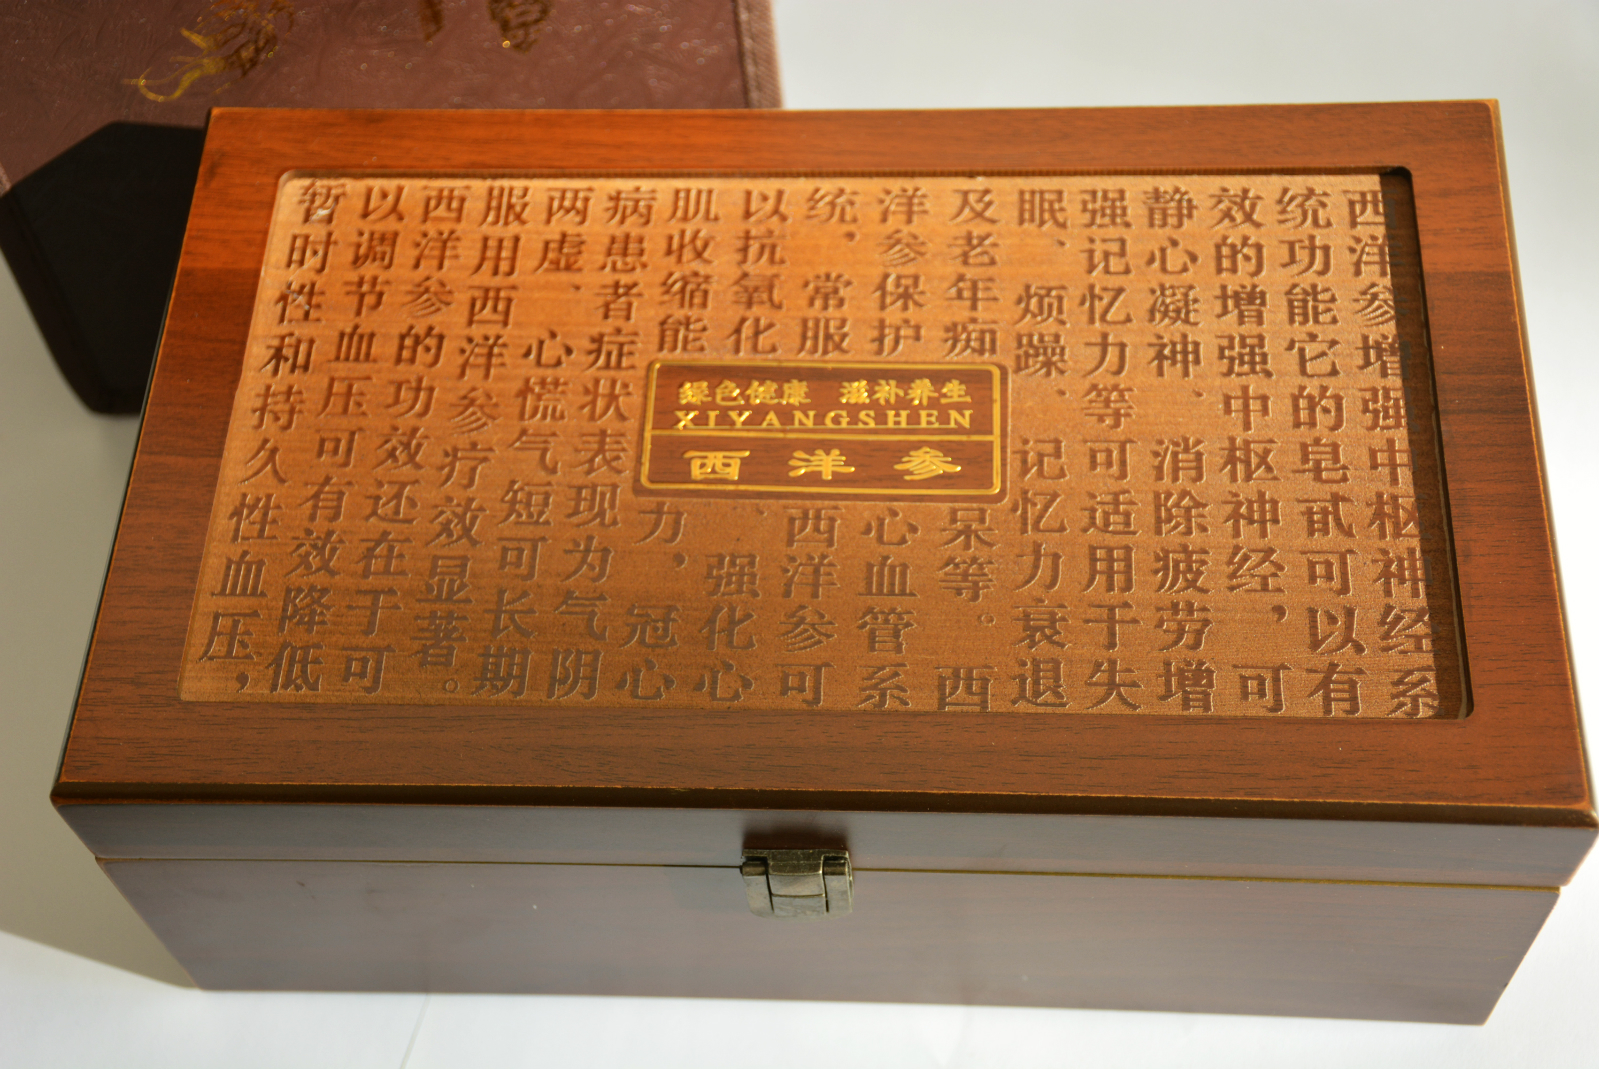 西洋参增强中枢神经系
统功能它的皂甙可以有
效的增强中枢神经，可
静心凝神、消除疲劳增
强记忆力等可适用于失
眠、烦躁、记忆力衰退
及老年痴呆等。西
洋参保护心血管系
统，常服西洋参可
以抗氧化、强化心
肌收缩能力，冠心
病患者症状表现为气阴
两虚、心慌气短可长期
服用西洋参疗效显著。
西洋参的功效还在于可
以调节血压可有效降低
暂时性和持久性血压，
绿色健康 滋补养生
XIYANGSHEN
西洋参